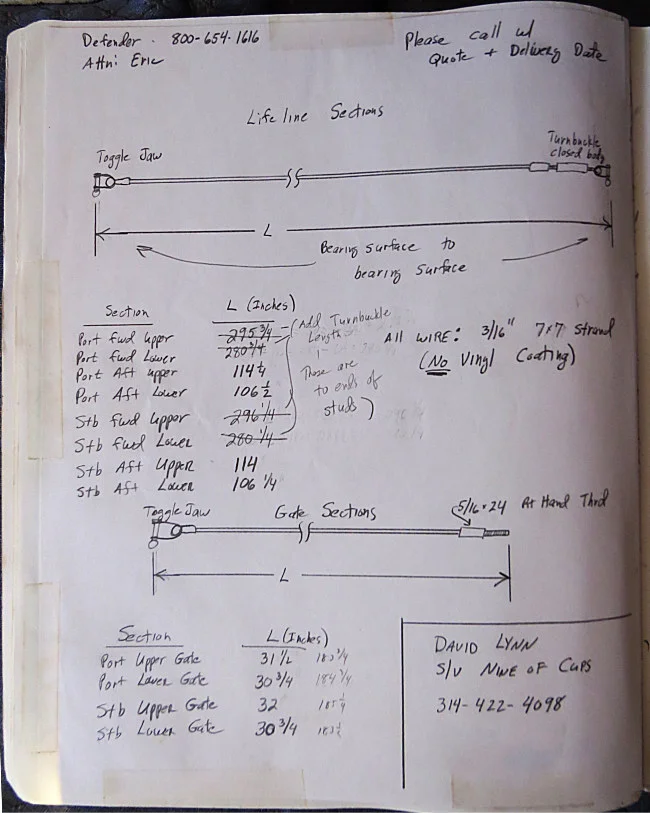 Defender - 800-654-1616
Attn: Eric
Please call w/
Quote + Delivery Date
Lifeline Sections
Toggle Jaw
Turnbuckle
closed body
L
Bearing surface to
bearing surface
Section L (Inches)
Port fwd upper 295 3/4
Port fwd Lower 280 3/4
Port Aft upper 114 1/4
Port Aft Lower 106 1/2
Stb fwd upper 296 1/4
Stb fwd Lower 280 1/4
Stb Aft Upper 114
Stb Aft Lower 106 1/4
(Add Turnbuckle
Length
These are
to ends of
studs)
All WIRE: 3/16" 7x7 strand
(No Vinyl Coating)
Toggle Jaw
Gate Sections
5/16 x 24 Rt Hand Thrd
L
Section L (Inches)
Port Upper Gate 31 1/2 183 3/4
Port Lower Gate 30 3/4 184 3/4
Stb Upper Gate 32
Stb Lower Gate 30 3/4
DAVID LYNN
S/V NINE OF CUPS
314-422-4098